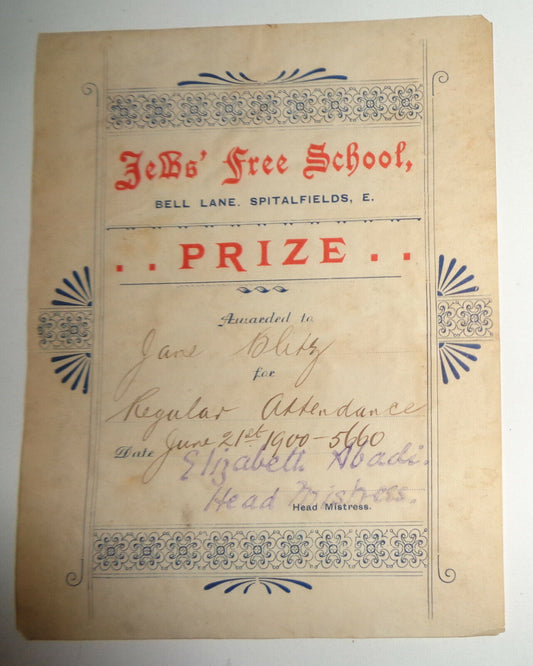 Jews' Free School,
BELL LANE. SPITALFIELDS, E.
. . PRIZE . .
Awarded to
Jane Blitz
for
Regular Attendance
Date June 21st 1900-5660
Elizabeth Abadi.
Head Mistress.
Head Mistress.